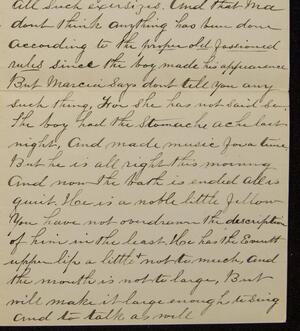 all such exersizes. And that Ma
dont think anything has been done
according to the proper old fashioned
rules since the boy made his appearance
But Marcia Says dont tell you any
such thing, For she has not said so.
The boy had the Stomache ache last
night, And made music for a time,
But he is all right this morning
And now the bath is ended All is
quiit. He is a noble little fellow
You have not overdrawn the description
of him in the least. He has the Everett
upper lip a little + not to much, and
the mouth is not to large, But
will make it large enough to Sing
And to talk as will